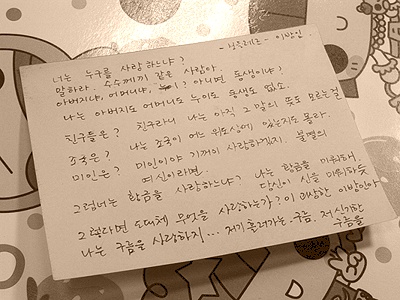 - 보들레르 - 이방인
너는 누구를 사랑하느냐?
말하라. 수수께끼 같은 사람아.
아버지냐, 어머니냐, 이? 아니면 동생이냐?
나는 아버지도 어머니도 누이도 동생도 없소.
친구들은? 친구라니 나는 아직 그 말의 뜻도 모르는걸
조국은? 나는 조국이 어느 위도상에 있는지도 몰라.
미인은? 미인이야 기꺼이 사랑하겠지. 불멸의
여신이라면.
그럼너는 황금을 사랑하느냐? 나는 황금을 미워해.
당신이 신을 미워하듯
그렇다면 도대체 무엇을 사랑하는가? 이 괴상한 이방인아
나는 구름을 사랑하지... 저기 흘러가는 구름. 저 신기한
구름을